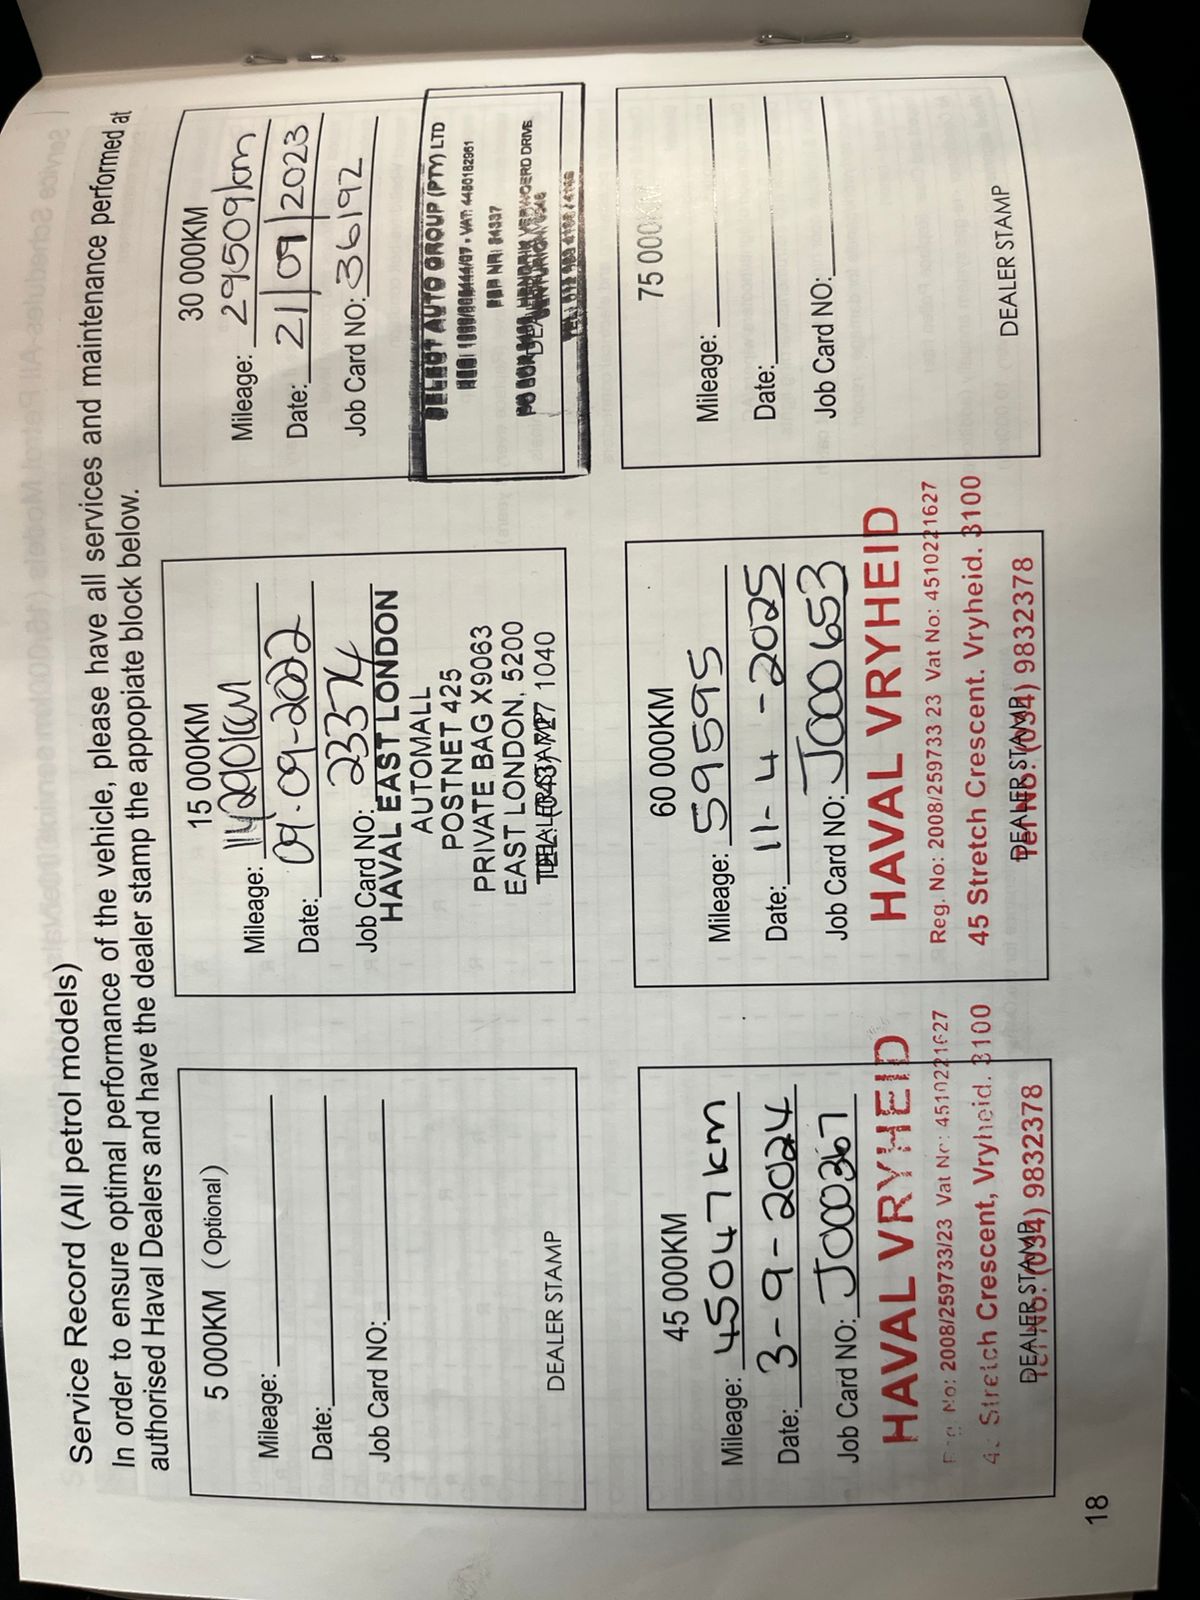 Service Record (All petrol models)
In order to ensure optimal performance of the vehicle, please have all services and maintenance performed at
authorised Haval Dealers and have the dealer stamp the appopiate block below.
5 000KM (Optional)
Mileage:
Date:
Job Card NO:
DEALER STAMP
15 000KM
Mileage: 14290KM
Date: 09-09-2022
Job Card NO: 23374
HAVAL EAST LONDON
AUTOMALL
POSTNET 425
PRIVATE BAG X9063
EAST LONDON, 5200
TEL: (043) 727 1040
DEALER STAMP
30 000KM
Mileage: 29509km
Date: 21/09/2023
Job Card NO: 36192
SELECT AUTO GROUP (PTY) LTD
VAT: 4480182961
HENDRIK VERWOERD DRIVE
CENTURION
45 000KM
Mileage: 45047km
Date: 3-9-2024
Job Card NO: J000367
HAVAL VRYHEID
No: 2008/259733/23 Vat No: 4510221627
Stretch Crescent, Vryheid. 3100
Tel No: (034) 9832378
DEALER STAMP
60 000KM
Mileage: 59595
Date: 11-4-2025
Job Card NO: J000653
HAVAL VRYHEID
Reg. No: 2008/259733 23 Vat No: 4510221627
45 Stretch Crescent. Vryheid. 3100
Tel No: (034) 9832378
DEALER STAMP
75 000KM
Mileage:
Date:
Job Card NO:
DEALER STAMP
18